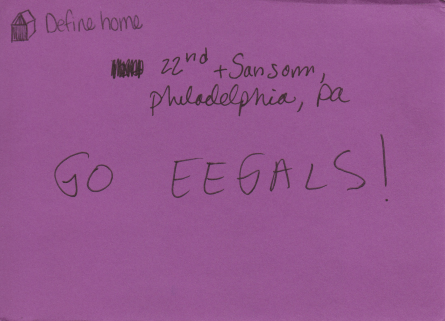 Define home
22nd + Sansom,
philadelphia, pa
GO EEGALS!